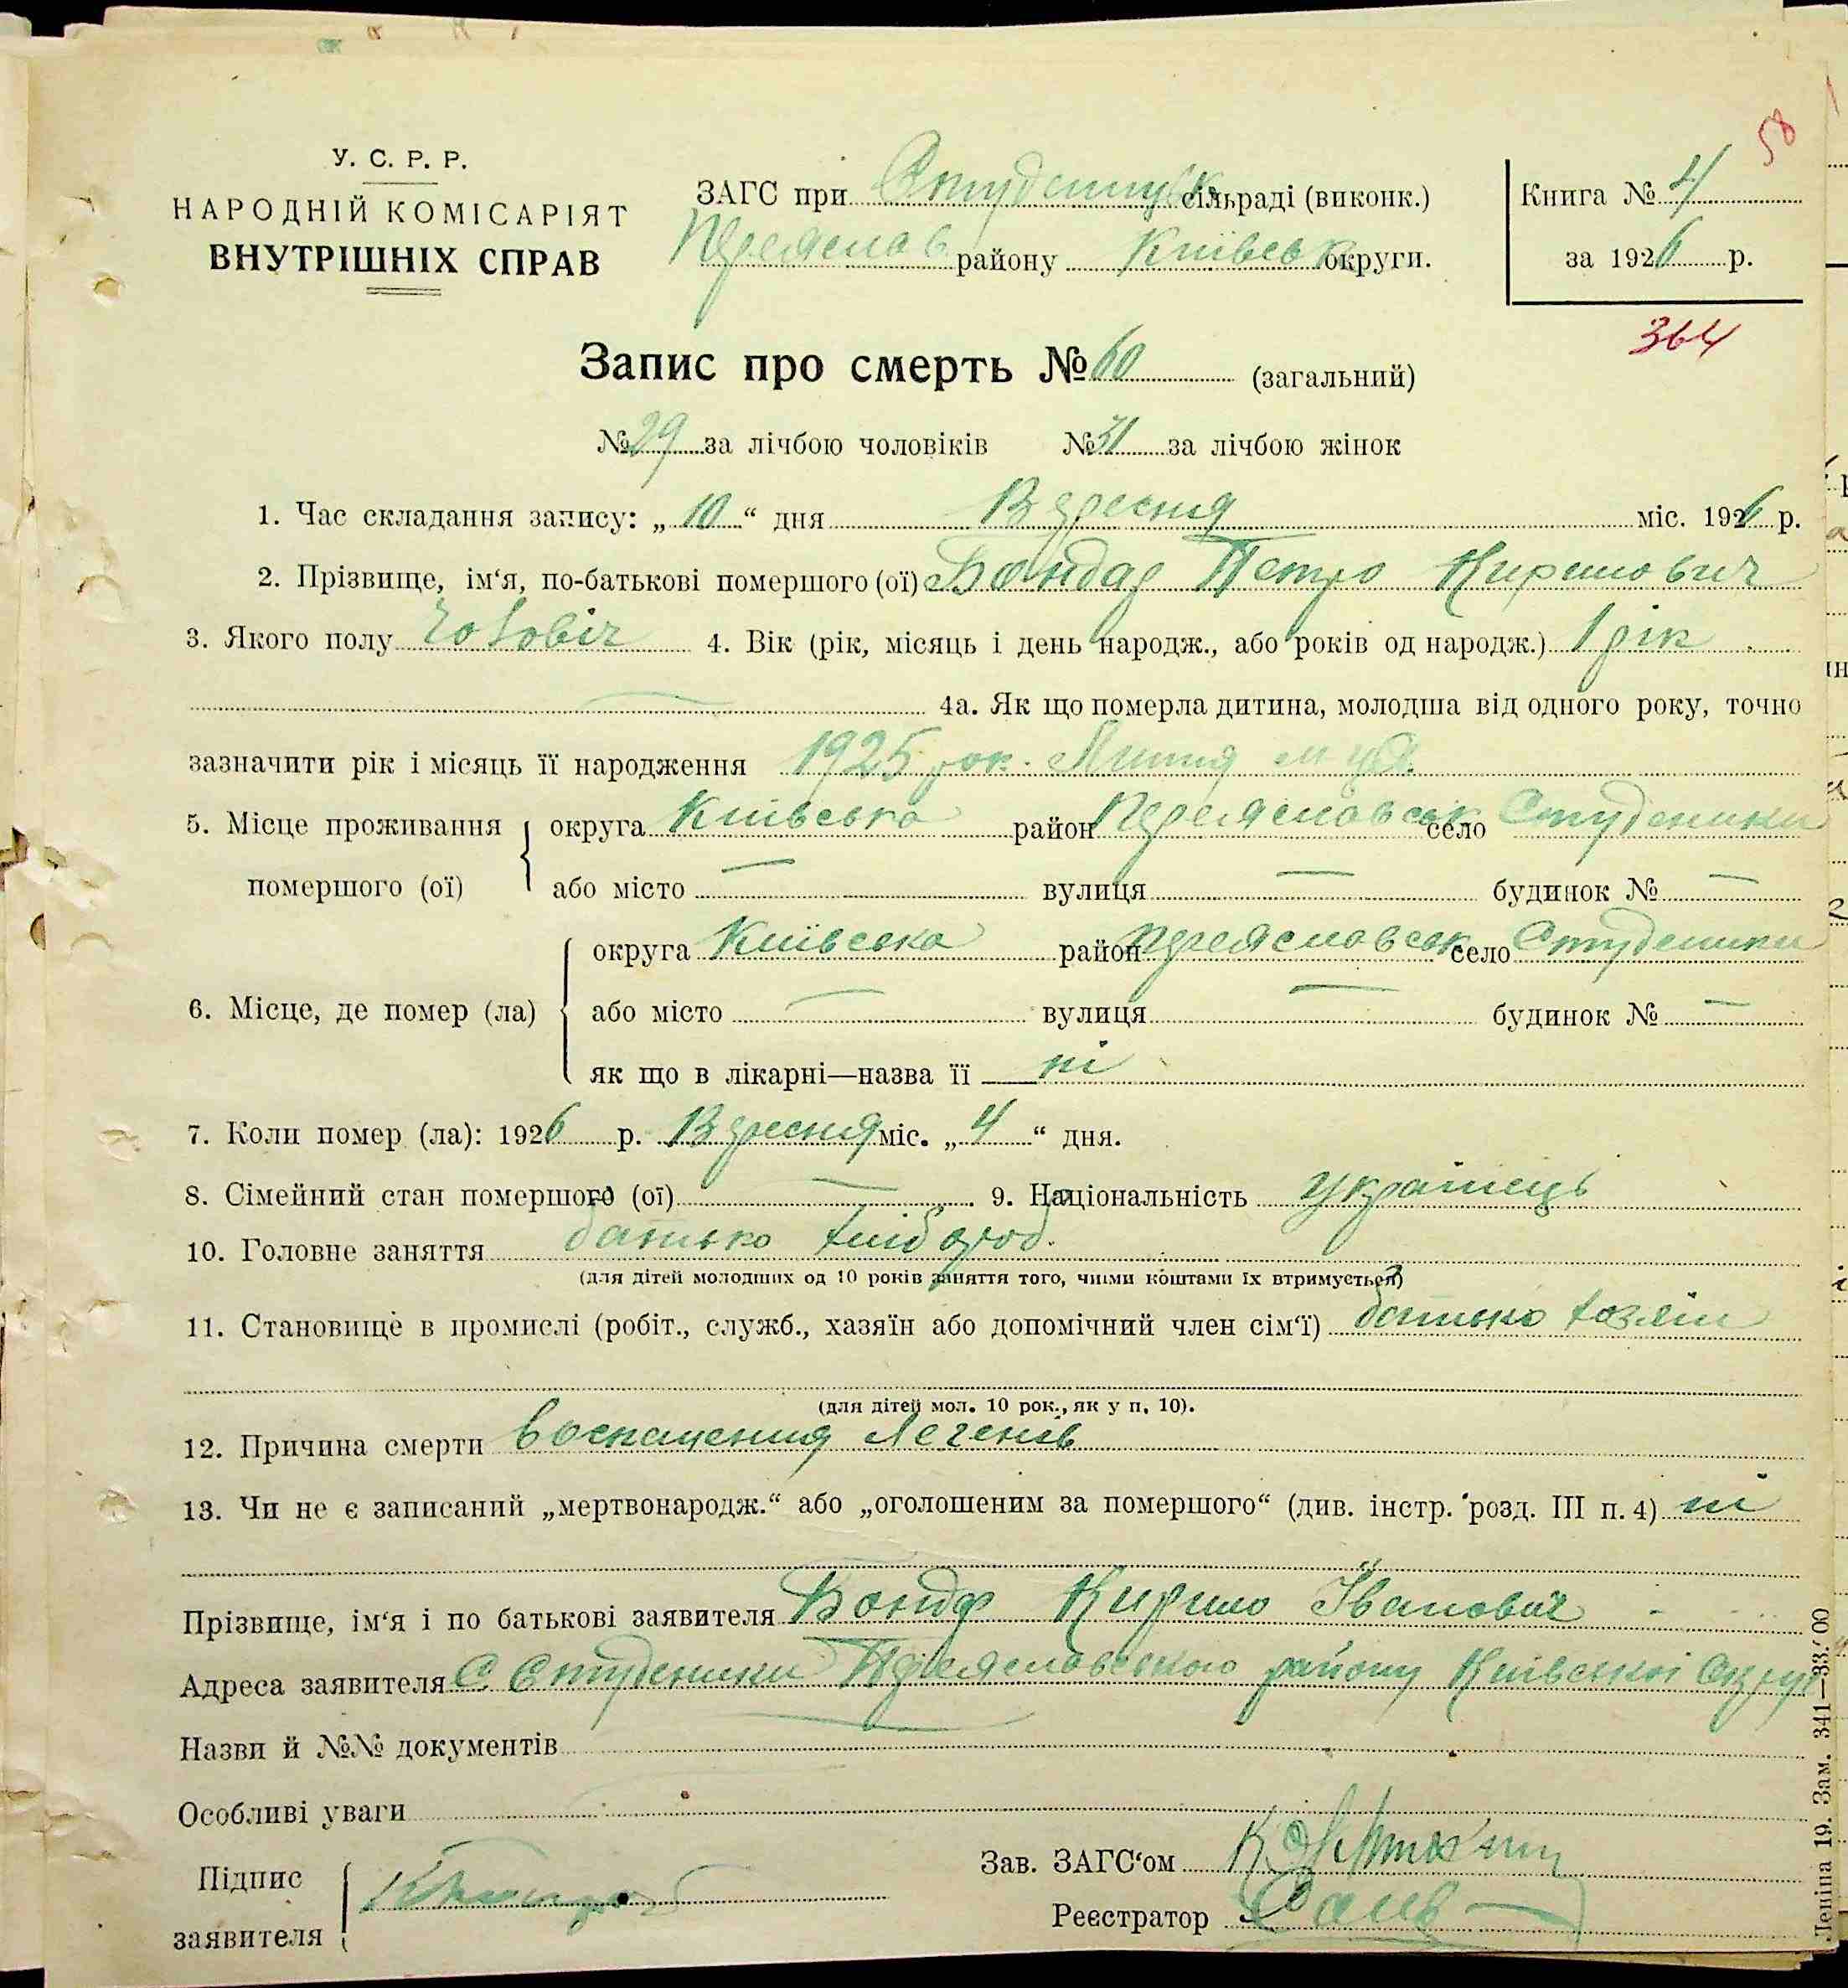 58
У. С. Р. Р.
НАРОДНІЙ КОМІСАРІЯТ
ВНУТРІШНІХ СПРАВ
ЗАГС при Студениц сільраді (виконк.)
Переяслав району Київськ округи.
Книга № 4
за 1926 р.
364
Запис про смерть № 60 (загальний)
№ 29 за лічбою чоловіків № 31 за лічбою жінок
1. Час складання запису: „ 10 “ дня Вересня міс. 1926 р.
2. Прізвище, ім‘я, по-батькові помершого (ої) Бондар Петро Кирилович
3. Якого полу Чоловіч 4. Вік (рік, місяць і день народж., або років од народж.) 1 рік
— 4а. Як що померла дитина, молодша від одного року, точно
зазначити рік і місяць її народження 1925 рок.
5. Місце проживання округа Київська район Переяславськ село Студеники
помершого (ої) або місто — вулиця — будинок № —
округа Київська район Переяславськ село Студеники
6. Місце, де помер (ла) або місто — вулиця — будинок № —
як що в лікарні—назва її ні
7. Коли помер (ла): 1926 р. Вересня міс. „ 4 “ дня.
8. Сімейний стан помершого (ої) — 9. Національність Українець
10. Головне заняття батько хлібороб.
(для дітей молодших од 10 років заняття того, чиїми коштами їх втримується)
11. Становище в промислі (робіт., служб., хазяїн або допомічний член сім‘ї) батько хозяїн
(для дітей мол. 10 рок., як у п. 10).
12. Причина смерти воспаления легенів
13. Чи не є записаний „мертвонародж.“ або „оголошеним за помершого“ (див. інстр. розд. III п. 4) ні
Прізвище, ім‘я і по батькові заявителя Бондар Кирило Іванович
Адреса заявителя С Студеники Переяславського району Київської Округ
Назви й №№ документів
Особливі уваги
Підпис
заявителя
Зав. ЗАГС‘ом
Реєстратор
Леніна 19. Зам. 341—33.000